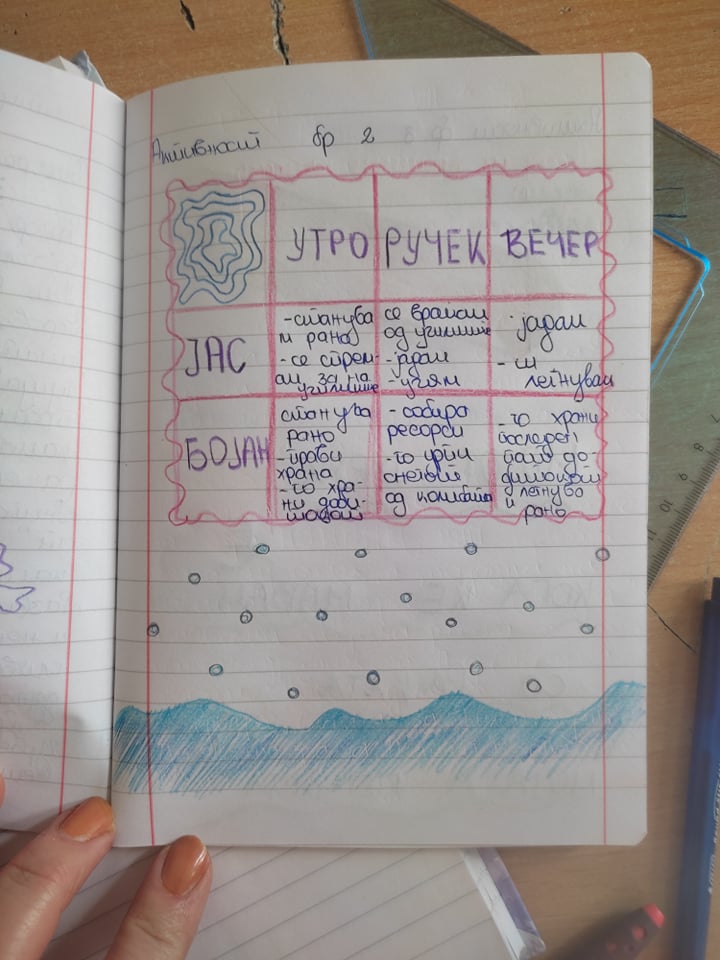 Активност бр 2
УТРО РУЧЕК ВЕЧЕР
ЈАС
-станува
м рано
-се спрем-
ам за на
училиште
се враќам
од училиште
-јадам
-учам
-јадам
- си
легнувам
БОЈАН
станува
рано
-прави
храна
-го хра-
ни доби-
токот
- собира
ресорси
-го трга
снегот
од колибата
-го храни
последен
пат до-
битокот
легнува
и
рано